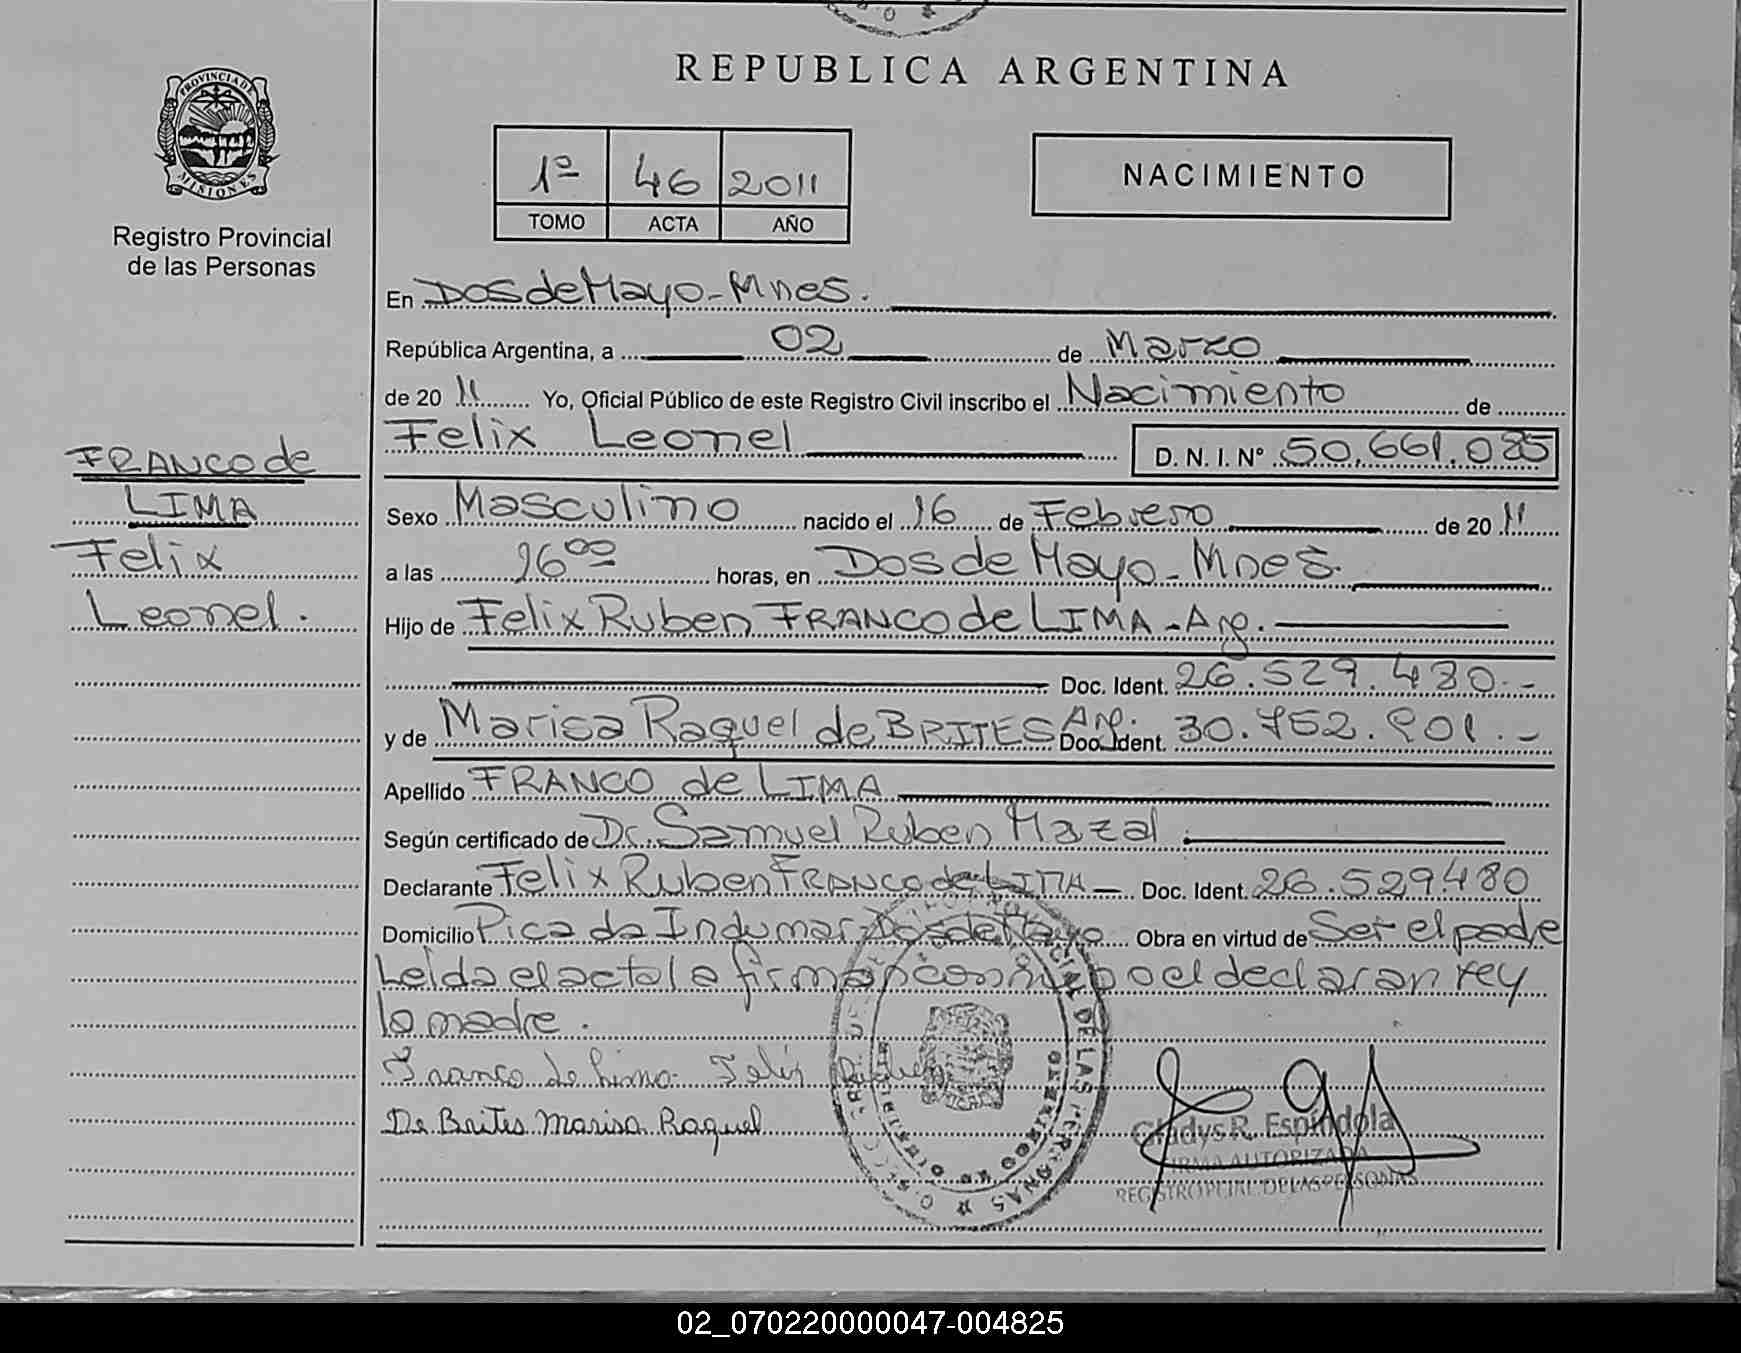 REPUBLICA ARGENTINA
PROVINCIA DE
MISIONES
Registro Provincial
de las Personas
1º 46 2011
TOMO ACTA AÑO
NACIMIENTO
En Dos de Mayo - Mnes.
República Argentina, a 02 de Marzo
de 20 11 Yo, Oficial Público de este Registro Civil inscribo el Nacimiento de
Felix Leonel D. N. I. Nº 50.661.085
FRANCO de
LIMA
Felix
Leonel.
Sexo Masculino nacido el 16 de Febrero de 20 11
a las horas, en Dos de Mayo - Mnes.
Hijo de Felix Ruben FRANCO de LIMA - Arg.
Doc. Ident. 26.529.480.-
y de Marisa Raquel de BRITES Arg. Doc. Ident. 30.752.901.-
Apellido FRANCO de LIMA
Según certificado de Dr. Samuel Ruben Mazal
Declarante Felix Ruben FRANCO de LIMA - Doc. Ident. 26.529.480
Domicilio Picada Indumar - Dos de Mayo Obra en virtud de Ser el padre
Leida el acta la firman conmigo el declarante y
la madre.
Franco de Lima Felix Ruben
De Brites Marisa Raquel
Gladys R. Espindola
FIRMA AUTORIZADA
REGISTRO PCIAL. DE LAS PERSONAS
02_070220000047-004825